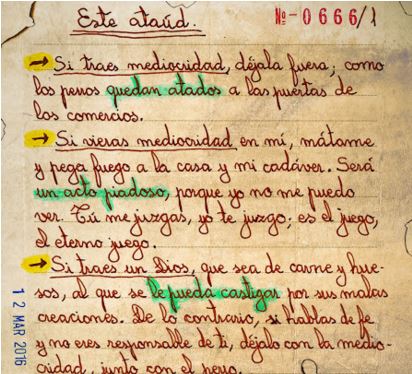 Este ataúd.
№-0666/1
Si traes mediocridad, déjala fuera; como
los perros quedan atados a las puertas de
los comercios.
Si vieras mediocridad en mí, mátame
y pega fuego a la casa y mi cadáver. Será
un acto piadoso, porque yo no me puedo
ver. Tú me juzgas, yo te juzgo; es el juego,
el eterno juego.
Si traes un Dios, que sea de carne y hue-
sos, al que se le pueda castigar por sus malas
creaciones. De lo contrario, si hablas de fe
y no eres responsable de ti, déjalo con la medio-
cridad, junto con el perro.
12 MAR 2016